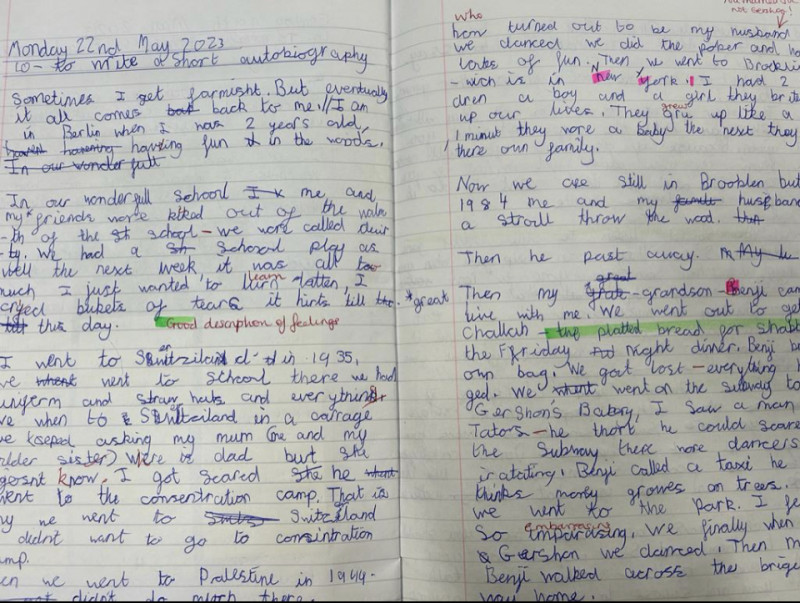 Monday 22nd May 2023
to write a short autobiography
Sometimes I get farmisht. But eventually
it all comes bat back to me. // I am
in Berlin when I was 2 years old,
having fun in the woods.
In our wonder full
In our wonderfull school I me, and
my friends wore kiked out of the
-th of the st school – we wore called
ty. We had a sh school play as
well the next week it was all to
much I just wanted to learn latten, I
cryed bukets of tears it hirts till the. *great
this day. Good description of feelings
I went to in 1935,
we went to school there we had
uniform and straw hats and everything
we when to in a cairage
we keeped asking my mum (me and my
older sister) Were is dad burt she
doesnt know. I got scared she he whent
went to the consentration camp. That is
why we went to Switzland
didn't want to go to consintration
camp.
en we went to Palestine in 1944.
didn't do much there.
not Gershog!
Who
how turned out to be my husband
we danced, we did the poker and ha
lotes of fun. Then we went to Brooklin
- wich is in new york. I had 2
dren a boy and a girl they brite
up our lives. They gru grew up like a
1 minut they wore a baby the next they
there own family.
Now we are still in Brooblen but
1984 me and my famil husband
a stroll throw the wood. the
Then he past away. My
Then my great -grandson - Benji can
live with me. We went out to get
Challah - the platted bread for shabb
the Ffriday not night diner. Benji b
own bag. We got lost – everything h
ged. We whent went on the subway to
Gershon's Bakery, I saw a man
Tators – he thort he could scare
the Subway there wore dancers
iratating. Benji called a taxi he
thinks money growes on trees.
we went to the Park. I fe
So embarrassing. We finally when
Gershon we danced. Then m
Benji walked across the brige
way home.